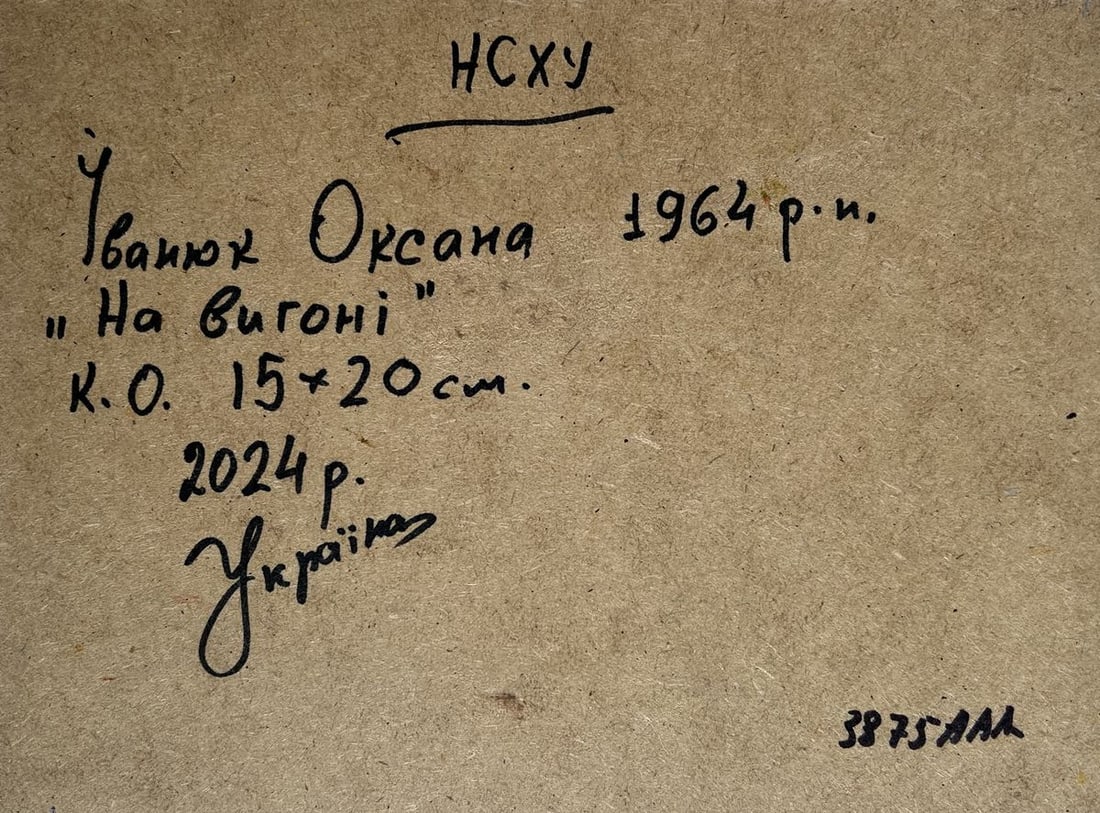 НСХУ
Іванюк Оксана 1964 р.н.
„На вигоні"
К.О. 15×20 см.
2024 р.
Україна
3875